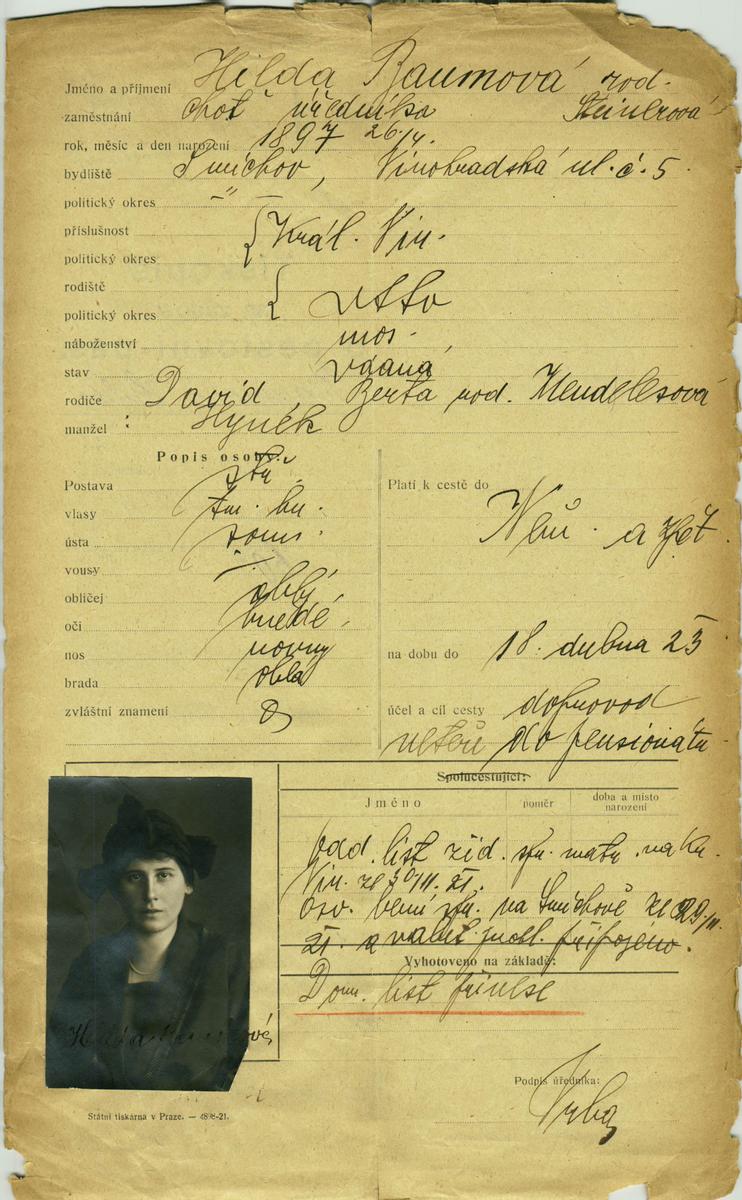 Jméno a příjmení Hilda Baumová rod.
zaměstnání choť úředníka Steinerová
rok, měsíc a den narození 1897 26./4.
bydliště Smíchov, Vinohradská ul. č. 5
politický okres –"–
příslušnost Král. Vin.
politický okres
rodiště
politický okres
náboženství mos.
stav vdaná
rodiče David, Berta rod. Mendelesová
manžel : Hynek
Popis osoby:
Postava stř.
vlasy tm. hn.
ústa
vousy –
obličej oblý
oči hnědé
nos
brada oblá
zvláštní znamení
Platí k cestě do
Něm. a zpět
na dobu do 18. dubna 23
účel a cíl cesty doprovod
do pensionátu
Spolucestující:
Jméno poměr doba a místo narození
Odd. list žid. matr. na Kr.
Vin. ze 30/11. 21.
na Smíchově ze 29/11.
21. připojeno.
Vyhotoveno na základě:
Dom. list
Podpis úředníka:
Vrba
Státní tiskárna v Praze. — 4898-21.